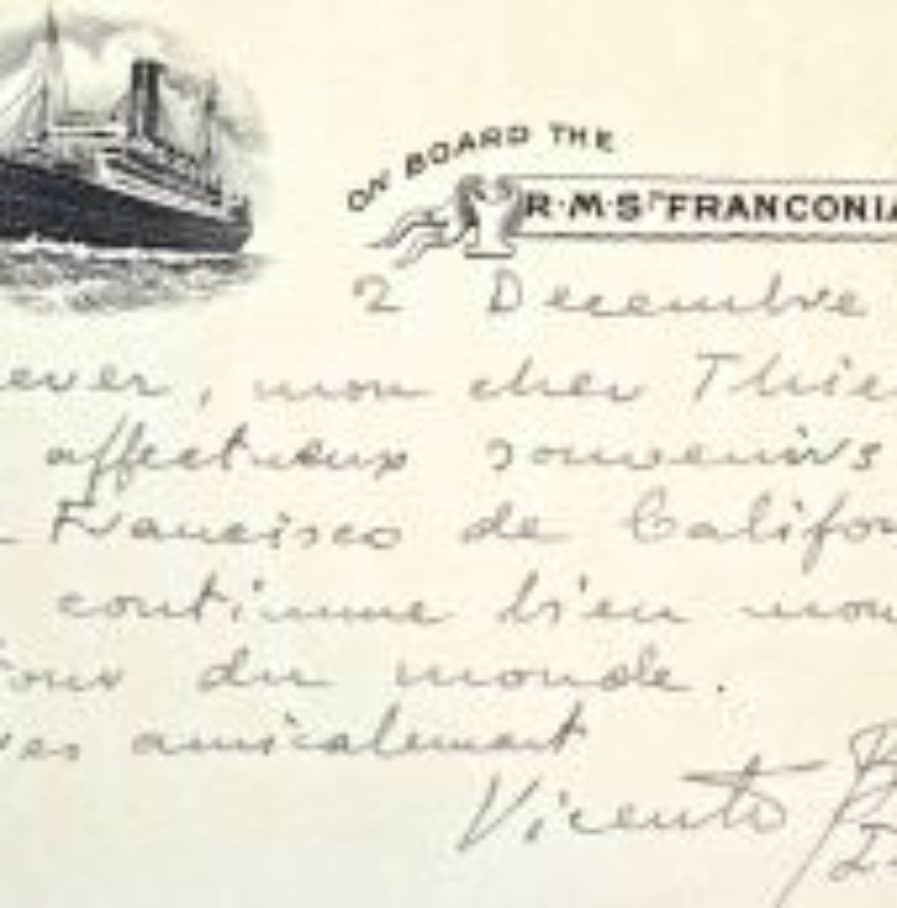 ON BOARD THE
R·M·S "FRANCONIA
2 Decembre
ever, mon cher Thie
affectueux souvenirs
Francisco de Califor
continue bien mon
tour du monde.
amicalement
Vicente